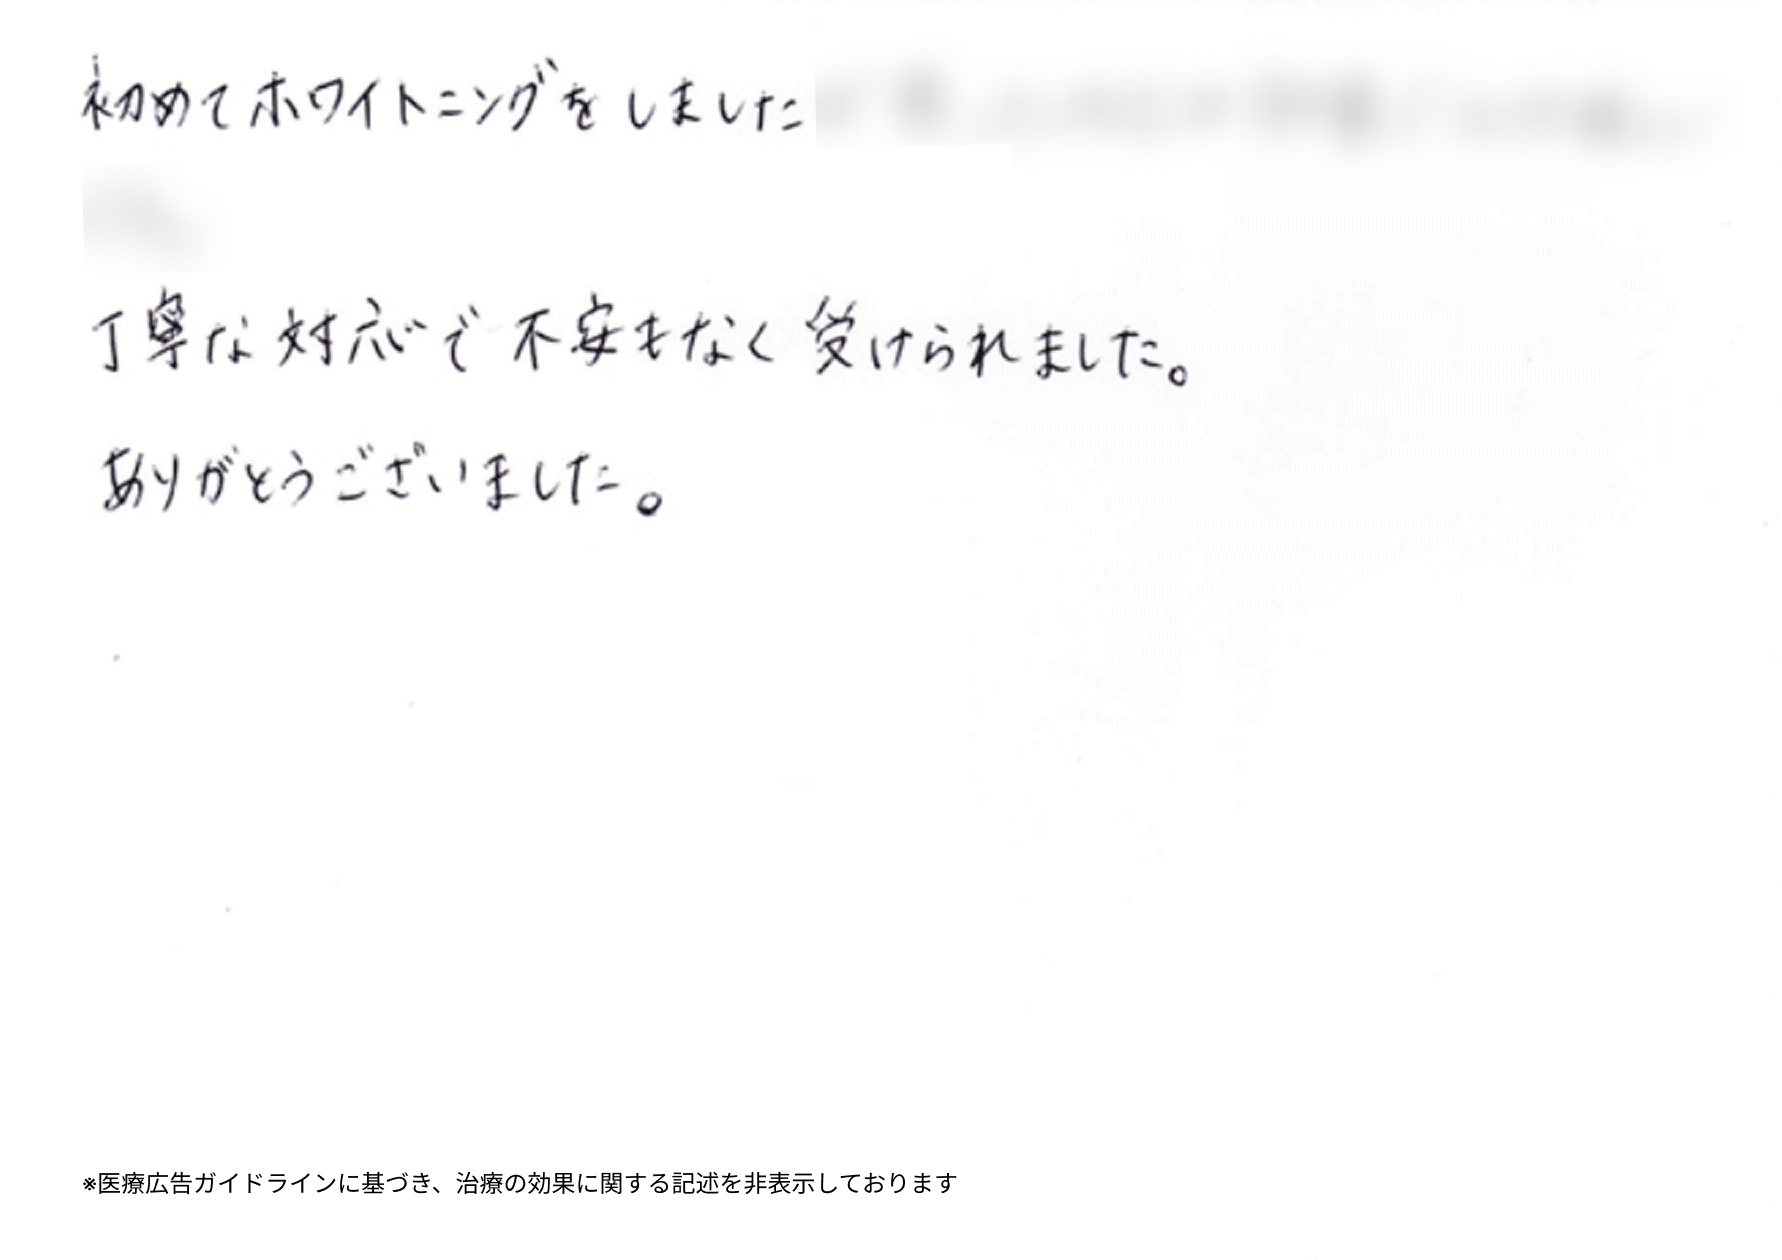 初めてホワイトニングをしました
丁寧な対応で不安もなく受けられました。
ありがとうございました。
※医療広告ガイドラインに基づき、治療の効果に関する記述を非表示しております